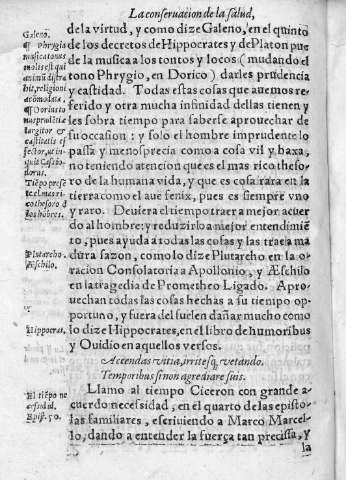 La conseruacion de la salud,
de la virtud, y como dize Galeno, en el quinto
de los decretos de Hippocrates y de Platon pue
de la musica a los tontos y locos (mudando el
tono Phrygio, en Dorico) darles prudencia
y castidad. Todas estas cosas que auemos re-
ferido y otra mucha infinidad dellas tienen y
les sobra tiempo para saberse aprouechar de
su occasion: y solo el hombre imprudente lo
passa y menosprecia como a cosa vil y baxa,
no teniendo atencion que es el mas rico theso-
ro de la humana vida, y que es cosa rara en la
tierra como el aue fenix, pues es siempre vno
y raro. Deuiera el tiempo traer a mejor acuer
do al hombre; y reduzirlo a mejor entendimiē
to, pues ayuda à todas las cosas y las trae a ma
dura sazon, como lo dize Plutarcho en la o-
racion Consolatoria a Apollonio, y Æschilo
en la tragedia de Prometheo Ligado. Apro-
uechan todas las cosas hechas a su tiempo op-
portuno, y fuera del suelen dañar mucho como
lo dize Hippocrates, en el libro de humoribus
y Ouidio en aquellos versos.
Accendas vitia, irritesq; vetando.
Temporibus si non agrediare suis.
Llamo al tiempo Ciceron con grande a-
cuerdo necessidad, en el quarto de las episto-
las familiares, escriuiendo a Marco Marcel-
lo, dando a entender la fuerça tan precissa, y
la
Galeno.
¶ Phrygia
musica tonus
animũ distra
hit, religioni
acōmodata.
¶ Dorius to
nus prudētiæ
largitor &
castitatis ef
fector, ut in-
quit Cassio-
dorus.
Tiēpo prese
te el mas ri-
co thesoro d
los hōbres.
Plutarcho.
Æschilo.
Hippocrat.
El tiēpo ne
cessidad.
Epist. 50.